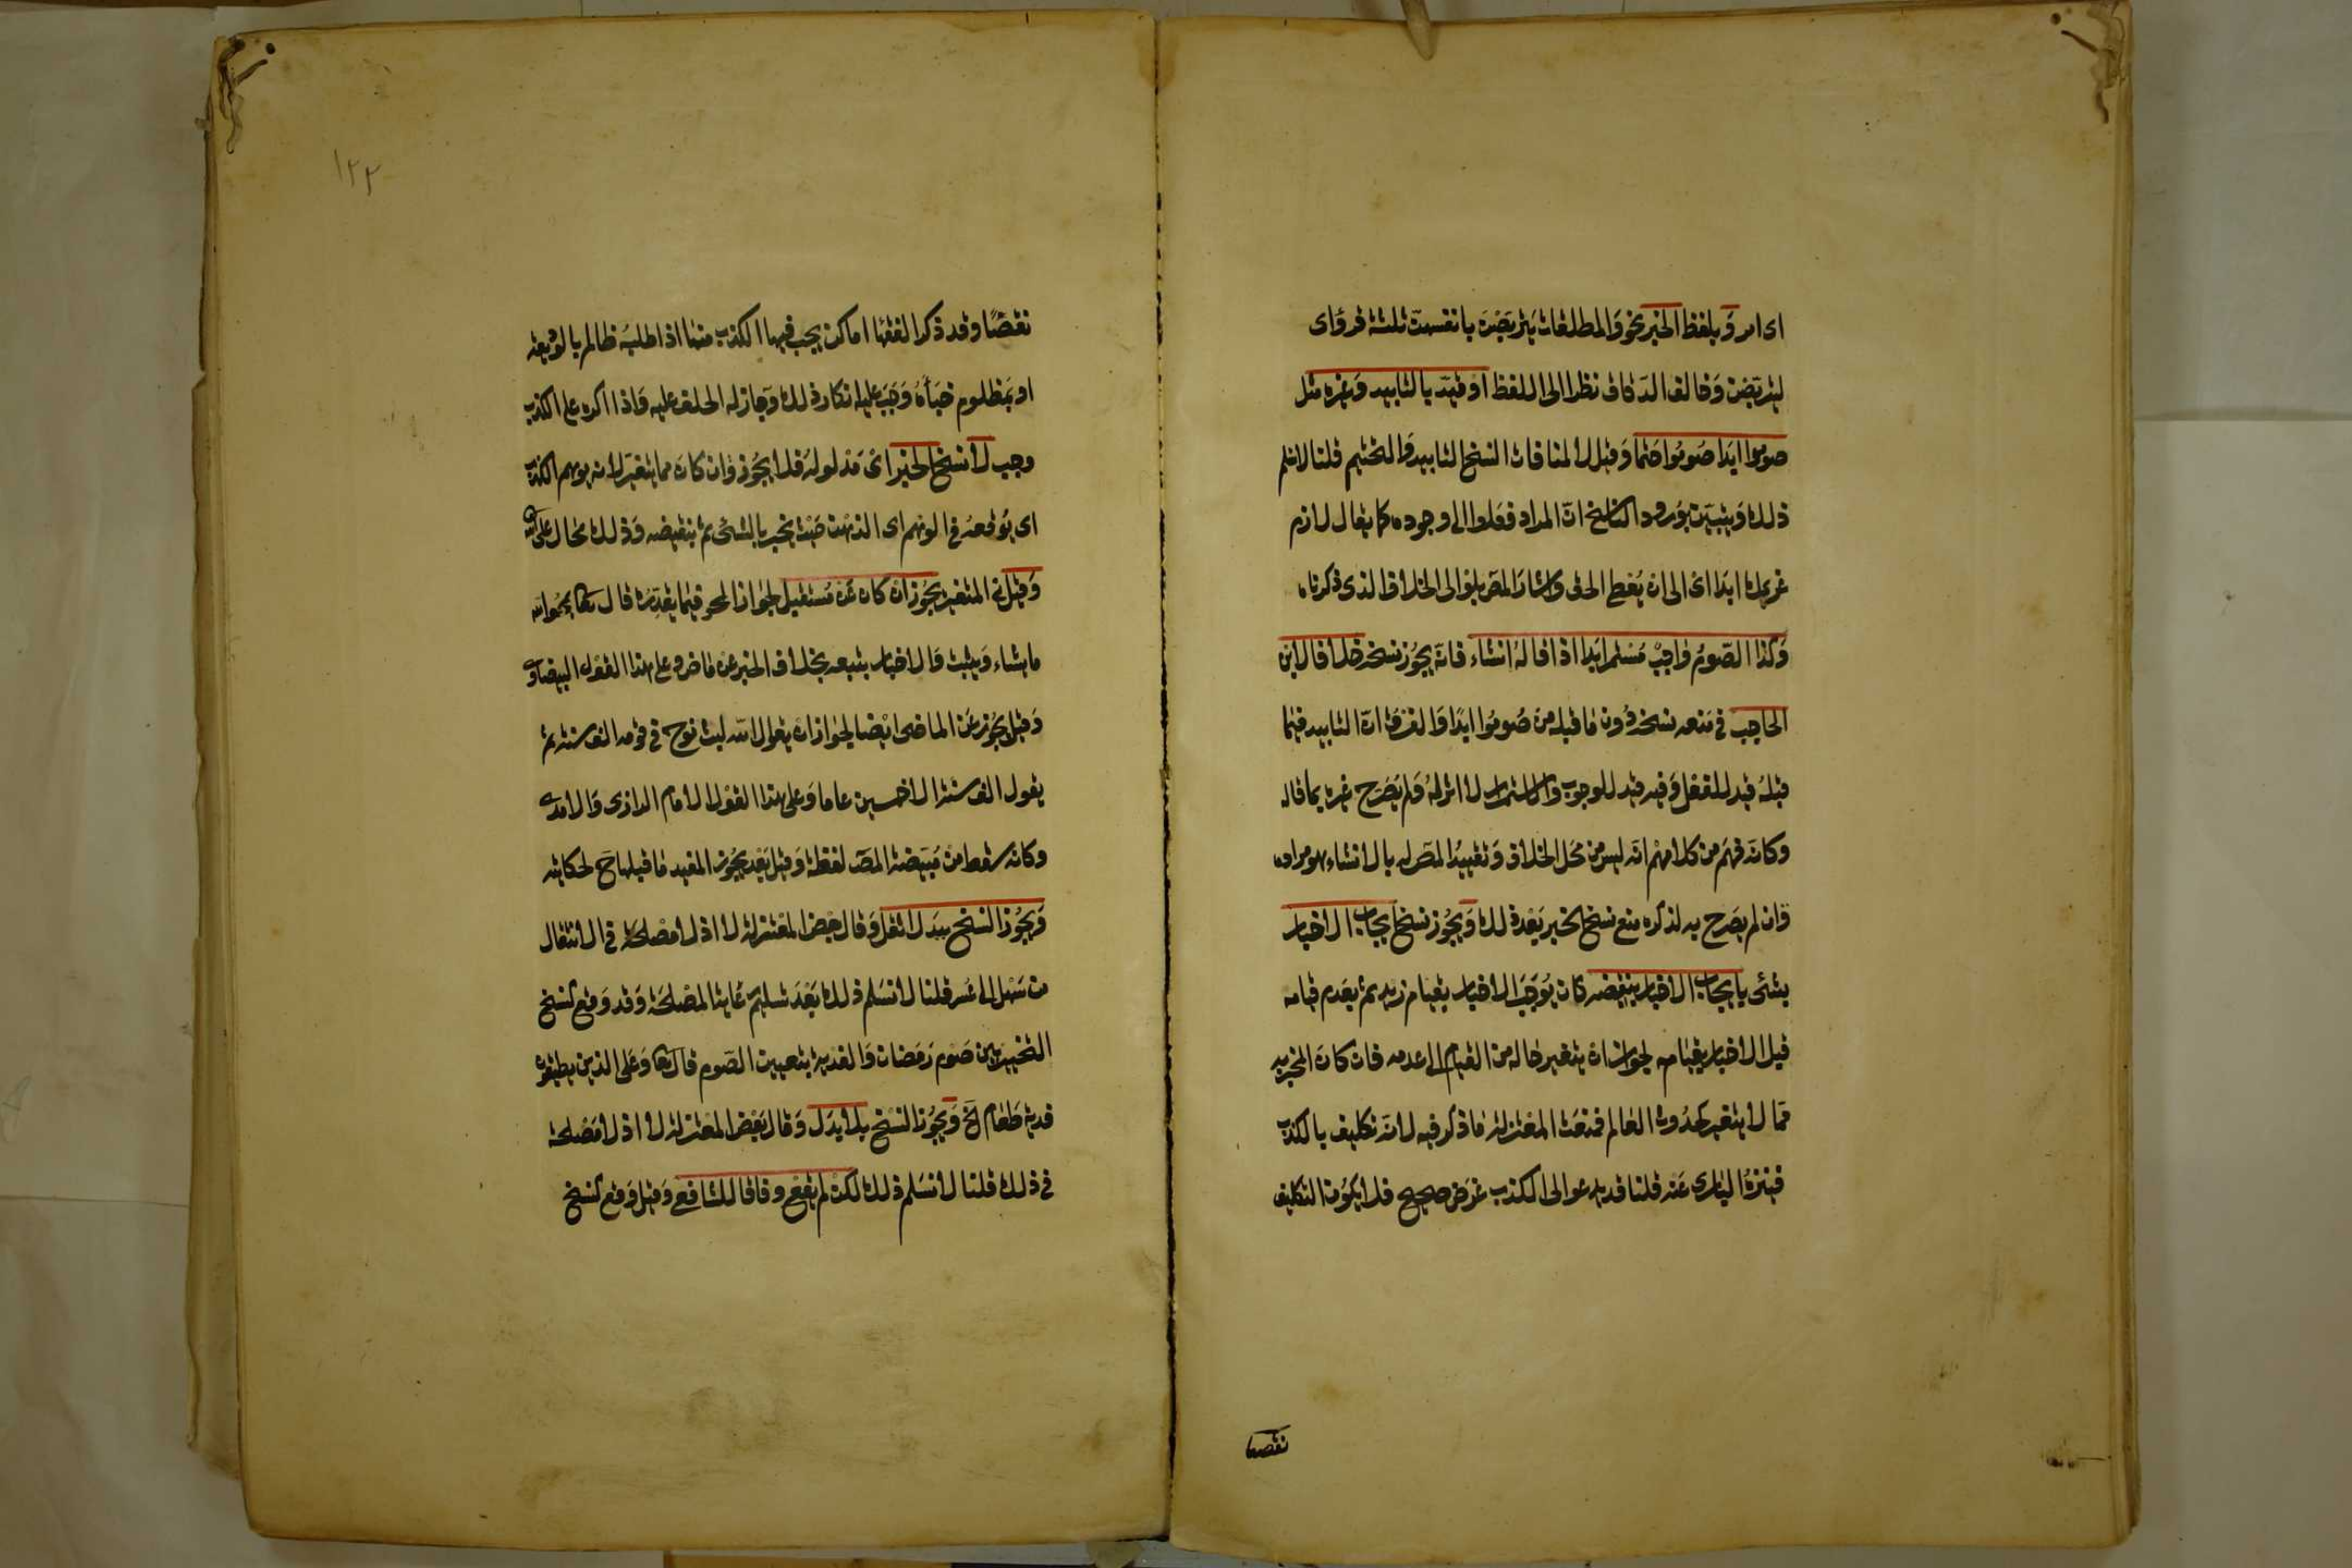 اى امر وَبلفظ الخبر نحو وَالمطلقات يتربّصْنَ بانفسهنّ ثلثة قروٓء اى
ليتربّصن وَخالف الدّقاق نظرا الى اللفظ اوْ قيّد بالتابيد وَغيره مثل
صوموا ابدَا صُومُوا حَتما وَقيل لا لمنافات النسخ التابيد وَالتحتيم قلنا لانسلم
ذلك وَيتبيّن بوُرود الناسخ انّ المراد افعلوا الى وجوده كما يقال لازم
غريمك ابدَا اى الى ان يُعْطِ الحق وَاشارَ المصّ بلو الى الخلاف الذى ذكرناه
وَكذا الصّومُ وَاجِبٌ مسْتمر ابَدا اذا قالهُ انشاء فانّه يجُوز نسْخه خلافا لابن
الحاجِب فى مَنعه نسخه دُون مَا قبله من صُومُوا ابدًا وَالفرق انّ التابيد فيما
قبْلهُ قيد للفعل وَفيه قيد للوجوب والاستمرار لا اثر لهُ وَلم يصَرّح غيره بما قاله
وكانّه فهمَ من كلامهمْ انّه ليس من محَل الخلاف وَتقييدُ المصّ له بالانشاء هو مراده
وَان لم يصَرح به لذكره منع نسخ الخبر بعْد ذلك وَيجُوز نسْخ ايجاب الاخبار
بشئ بايجاب الاخبار بنقيضه كان يُوجَبَ الاخبار بقيام زيد ثم بعَدم قيامه
قبل الاخبار بقيامه لجواز ان يتغير حَاله من القيام الى عدمه فان كانَ المخبر به
ممّا لا يتغير كحدُوث العَالم فمنعَت المعْتزلة مَا ذكر فيه لانّه تكليف بالكذب
فينزهُ البَارى عَنه قلنا قد يدعو الى الكذب غرَض صحيح فلا يكوُن التكليف
نقصا
١٢٢
نقصًا وقد ذكر الفقهَا اماكن يجب فيها الكذب منها اذا طلبه ظالم بالوديعة
او بمَظلوم خبَأهُ وَجَبَ عَليه انكار ذلك وَجَازله الحلف عليه وَاذا اكره على الكذب
وجب لا نسْخ الخبر اى مَدلولهُ فلا يجُوز وَان كانَ مما يتغيّر لانه يوهم الكذب
اى يُوقعهُ فى الوهم اى الذهن حَيث يخبر بالشئ ثم بنقيضه وَذلك محَال على الله
وَقيل فى المتغيّر يجُوز ان كان عَن مُستقبل لجوَاز المحو فيما يقدّرُه قال تعا يمحُوا الله
ما يشاء وَيثبت وَالاخبار يتبعه بخلاف الخبر عن مَاض وعلى هذا القول البيضاوى
وَقيل يجُوز عَن الماضى ايْضا لجوَاز ان يقول الله لبث نوح فى قومه الف سنة ثم
يقول الف سَنة الا خمسين عاما وَعلى هذا القوْل الامام الرازى وَالآمدى
وكانه سقط من مُبَيّضة المصّ لفظة وَقيل بعْد يجُوز المفيد مَا قبلها ح لحكايته
وَيجُوز النسْخ ببَدل اثقل وَقال بعض المعْتزلة لا اذ لا مصْلحَة فى الانتقال
من سَهل الى عُسر قلنا لا نسَلم ذلك بَعْدَ تسليم رعَاية المصْلحَة وَقد وَقع كنسخ
التخيير بين صَوم رَمَضان وَالفدية بتعيين الصّوم قال تعا وَعَلى الذين يطيقونه
فدية طَعَام الخ وَيجُوز النسْخ بلا بدَل وَقال بعْض المعْتزلة لا اذ لا مصْلحة
فى ذلك قلنا لا نسَلم ذلك لكن لم يقع وفاقا للشافعى وَقيل وَقع كنسخ